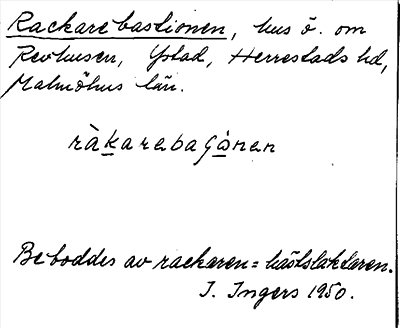 Rackarebastionen, hus ö. om
Revhusen, Ystad, Herrestads hd,
Malmöhus län.
ràkarebaʂónen
Beboddes av rackaren = hästslaktaren.
I. Ingers 1950.